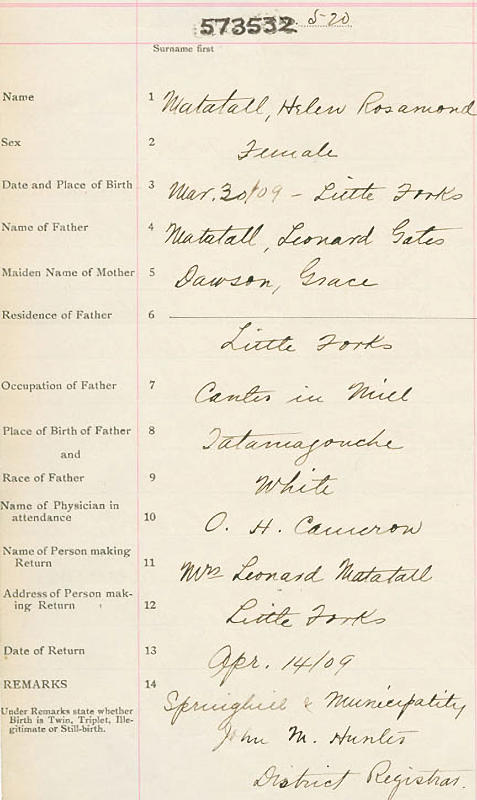 573532. 5-20
Surname first
Name 1 Matatall, Helen Rosamond
Sex 2 Female
Date and Place of Birth 3 Mar. 30/09 - Little Forks
Name of Father 4 Matatall, Leonard Gates
Maiden Name of Mother 5 Dawson, Grace
Residence of Father 6
Little Forks
Occupation of Father 7 Canter in Mill
Place of Birth of Father 8 Tatamagouche
and
Race of Father 9 White
Name of Physician in
attendance 10 O. H. Cameron
Name of Person making
Return 11 Mrs Leonard Matatall
Address of Person mak-
ing Return 12 Little Forks
Date of Return 13 Apr. 14/09
REMARKS 14 Springhill & Municipality
Under Remarks state whether
Birth is Twin, Triplet, Ille-
gitimate or Still-birth.
John M. Hunter
District Registrar.